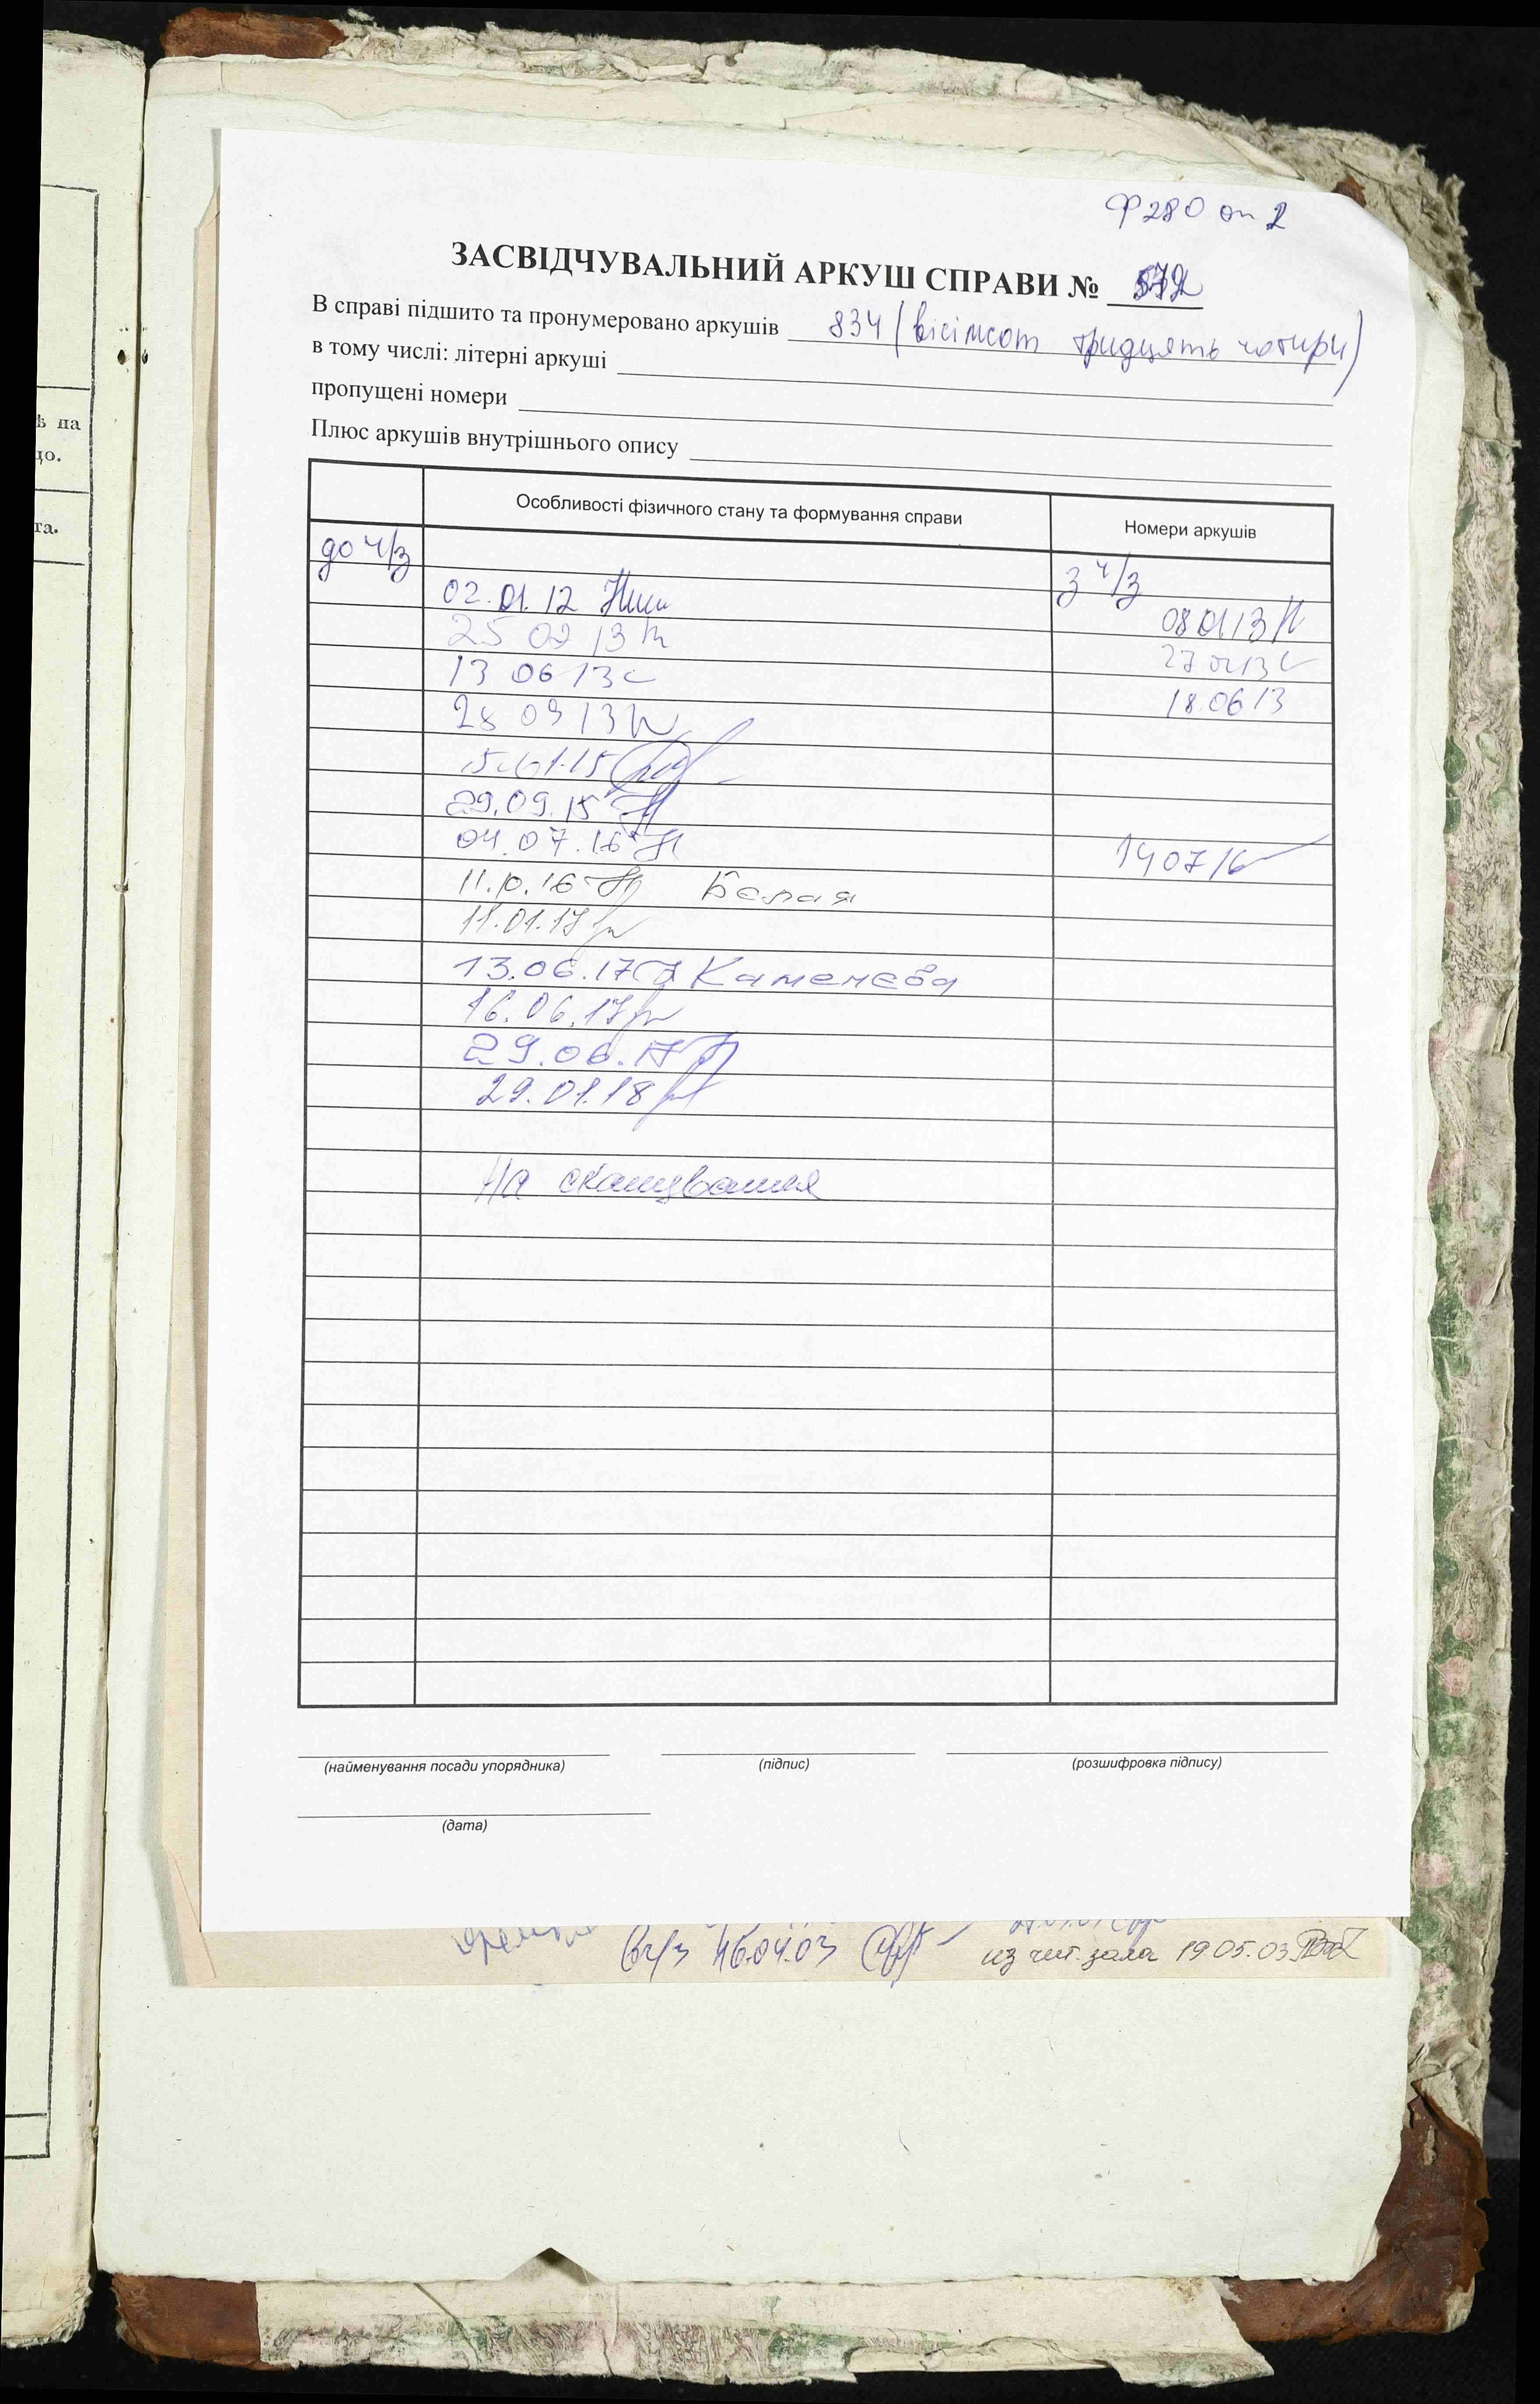 ѣ на
до.
та.
Ф 280 оп 2
ЗАСВІДЧУВАЛЬНИЙ АРКУШ СПРАВИ №
В справі підшито та пронумеровано аркушів 834 (вісімсот тридцять чотири)
в тому числі: літерні аркуші
пропущені номери
Плюс аркушів внутрішнього опису
Особливості фізичного стану та формування справи Номери аркушів
до ч/з з ч/з
02.01.12 08 01 13
25 02 13 27 02 13
13 06 13 18.06 13
28 09 13
15.01.15
29.09.15
04.07.16 14 07 16
11.10.16 Белая
11.01.17
13.06.17 Каменева
16.06.17
29.06.17
29.01.18
На сканування
(найменування посади упорядника) (підпис) (розшифровка підпису)
(дата)
в ч/з 16.04.03 из чит. зала 19.05.03